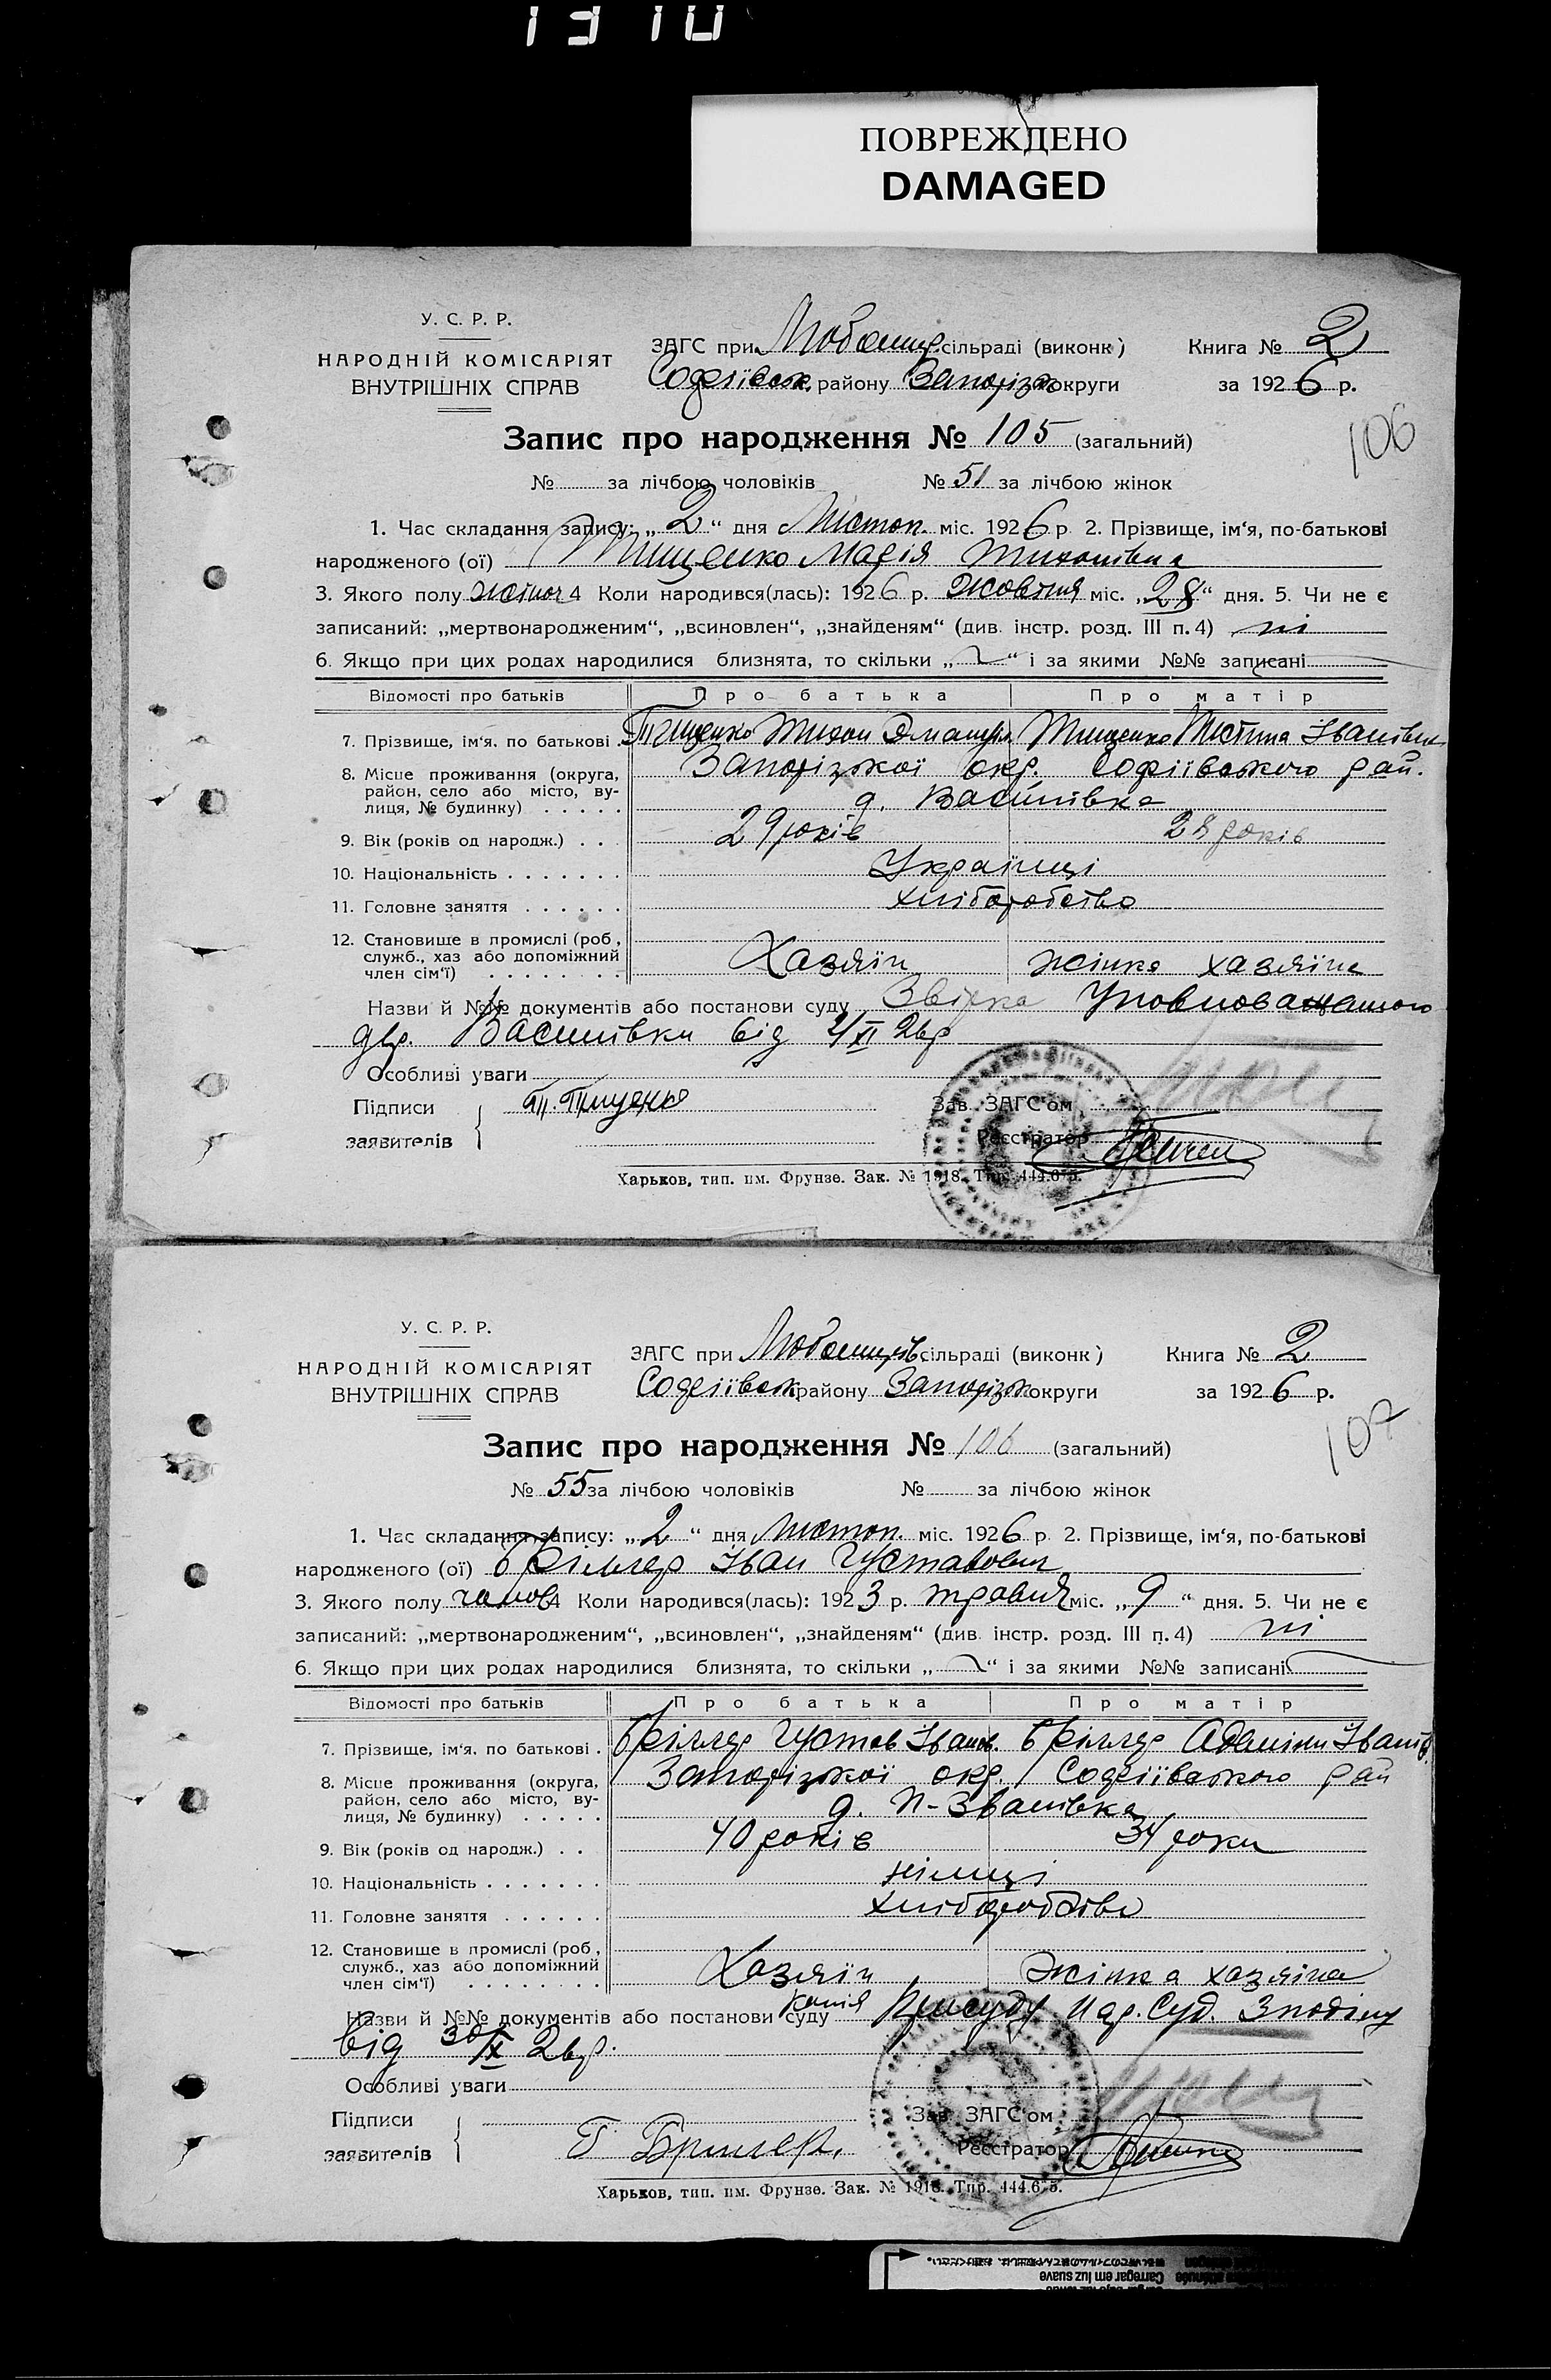 1310
ПОВРЕЖДЕНО
DAMAGED
У. С. Р. Р.
НАРОДНІЙ КОМІСАРІЯТ
ВНУТРІШНІХ СПРАВ
ЗАГС при сільраді (виконк) Книга № 2
Софіївськ. району Запоріжж округи за 1926 р.
106
Запис про народження № 105 (загальний)
№ за лічбою чоловіків № 51 за лічбою жінок
1. Час складання запису: „2“ дня Листоп. міс. 1926 р 2. Прізвище, ім‘я, по-батькові
народженого (ої) Тищенко Марія Тихонівна
3. Якого полу жіноч 4 Коли народився(лась): 1926 р. Жовтня міс. „28“ дня. 5. Чи не є
записаний: „мертвонародженим“, „всиновлен“, „знайденям“ (див. інстр. розд. III п. 4) ні
6. Якщо при цих родах народилися близнята, то скільки „ “ і за якими №№ записані
Відомості про батьків Про батька Про матір
7. Прізвище, ім‘я, по батькові Тищенко Тихон Дмитрів. Тищенко Іванівна
8. Місце проживання (округа, Запорізької окр. Софіївського рай.
район, село або місто, ву-
лиця, № будинку) д. Василівка
9. Вік (років од народж.) 29 років 28 років
10. Національність Українці
11. Головне заняття хліборобство
12. Становище в промислі (роб,
служб., хаз або допоміжний
член сім‘ї) Хазяїн жінка хазяїна
Назви й №№ документів або постанови суду Звірка Уповноваженого
дер. Василівки від 2/XI 26р
Особливі уваги
Підписи Т. Тищенко Зав. ЗАГС‘ом
заявителів Реєстратор
Харьков, тип. им. Фрунзе. Зак. № 1918. Тир. 444.675.
У. С. Р. Р.
НАРОДНІЙ КОМІСАРІЯТ
ВНУТРІШНІХ СПРАВ
ЗАГС при сільраді (виконк) Книга № 2
Софіївськ району Запоріжж округи за 1926 р.
107
Запис про народження № 106 (загальний)
№ 55 за лічбою чоловіків № за лічбою жінок
1. Час складання запису: „2“ дня Листоп. міс. 1926 р 2. Прізвище, ім‘я, по-батькові
народженого (ої) Бріллер Іван Густавович
3. Якого полу чолов 4 Коли народився(лась): 1923 р. травня міс. „9“ дня. 5. Чи не є
записаний: „мертвонародженим“, „всиновлен“, „знайденям“ (див. інстр. розд. III п. 4) ні
6. Якщо при цих родах народилися близнята, то скільки „ “ і за якими №№ записані
Відомості про батьків Про батька Про матір
7. Прізвище, ім‘я, по батькові Бріллер Густав Іванов. Бріллер Іванів.
8. Місце проживання (округа, Запорізької окр. Софіївського рай
район, село або місто, ву-
лиця, № будинку) д.
9. Вік (років од народж.) 40 років 34 роки
10. Національність німці
11. Головне заняття хліборобство
12. Становище в промислі (роб,
служб., хаз або допоміжний
член сім‘ї) Хазяїн Жінка хазяїна
Назви й №№ документів або постанови суду копія Нар. Суд.
від 30/IX 26р.
Особливі уваги
Підписи Зав. ЗАГС‘ом
заявителів Г Брилер. Реєстратор
Харьков, тип. им. Фрунзе. Зак. № 1918. Тир. 444.675.
Carregar em luz suave